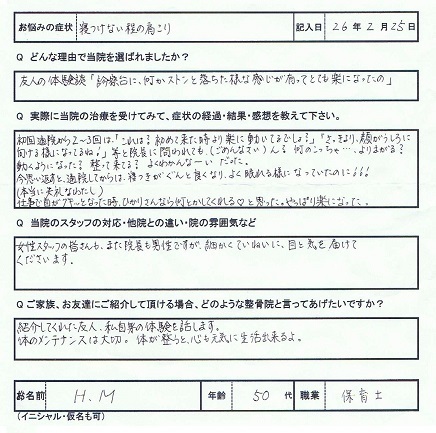 お悩みの症状 寝つけない程の肩こり 記入日 26年2月25日
Q どんな理由で当院を選ばれましたか？
友人の体験談「診療台に、何かストンと落ちた様な感じが有ってとても楽になったの」
Q 実際に当院の治療を受けてみて、症状の経過・結果・感想を教えて下さい。
初回通院から2〜3回は、「これは？初めて来た時より楽に動いてるでしょ？」「さっきより、顔がうしろに
向ける様になってるね！」等と院長に問われても、（ごめんなさい）ん？何のこっちゃ…、よりまがる？
動くようになった？整って来てる？よくわかんなーい だった。
今思い返すと、通院してからは、寝つきがぐんと良くなり、よく眠れる様になっていたのに!!!
（本当に失礼なわたし）
仕事で首がアキッとなった時、ひかりさんなら何とかしてくれる♡と思った。やっぱり楽になった。
Q 当院のスタッフの対応・他院との違い・院の雰囲気など
女性スタッフの皆さんも、また院長も男性ですが、細かくていねいに、目と気を届けて
くださいます。
Q ご家族、お友達にご紹介して頂ける場合、どのような整骨院と言ってあげたいですか？
紹介してくれた友人、私自身の体験を話します。
体のメンテナンスは大切。体が整うと、心も元気に生活出来るよ。
お名前 H.M 年齢 50代 職業 保育士
（イニシャル・仮名も可）